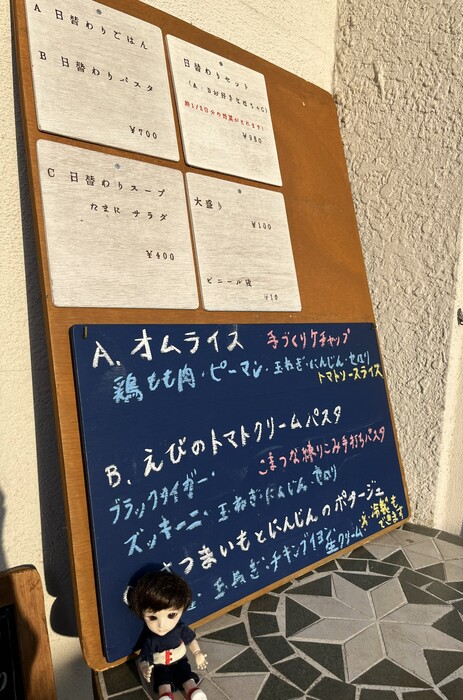 A 日替わりごはん
B 日替わりパスタ
¥700
日替わりセット
¥980
C 日替わりスープ
たまに サラダ
¥400
大盛り
¥100
ビニール袋
¥10
A. オムライス 手づくりケチャップ
鶏もも肉・ピーマン・玉ねぎ・にんじん・セロリ
トマトソースライス
B. えびのトマトクリームパスタ
こまつな練りこみ手打ちパスタ
ブラックタイガー・
ズッキーニ・玉ねぎ・にんじん・セロリ
さつまいもとにんじんのポタージュ
玉ねぎ・チキンブイヨン・生クリーム
できます